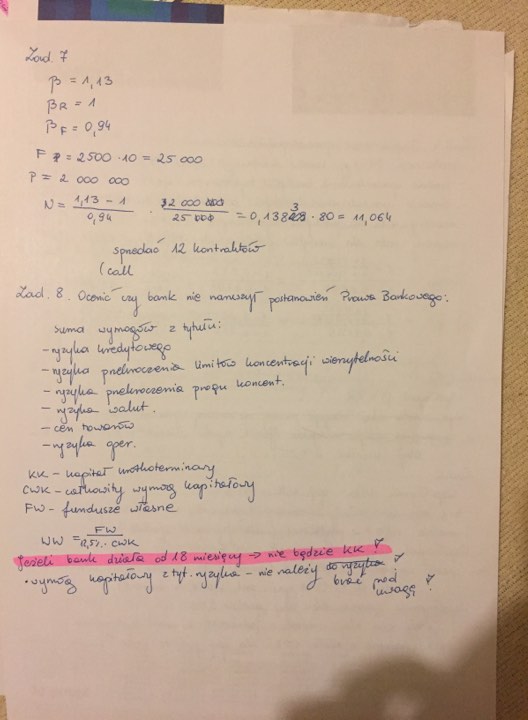 Zad. 7
β = 1,13
βR = 1
βF = 0,94
F = 2500 · 10 = 25 000
P = 2 000 000
N = (1,13 - 1) / 0,94 · 2 000 000 / 25 000 = 0,1383 · 80 = 11,064
sprzedać 12 kontraktów
(call
Zad. 8. Ocenić czy bank nie naruszył postanowień Prawa Bankowego:
suma wymogów z tytułu:
- ryzyka kredytowego
- ryzyka przekroczenia limitów koncentracji wierzytelności
- ryzyka przekroczenia progu koncent.
- ryzyka walut.
- cen towarów
- ryzyka oper.
KK - kapitał krótkoterminowy
CWK - całkowity wymóg kapitałowy
FW - fundusze własne
WW = FW / 12,5 · CWK
Jeżeli bank działa od 18 miesięcy → nie będzie KK !
• wymóg kapitałowy z tyt. ryzyka - nie należy do ryzyka !
brać pod uwagę !